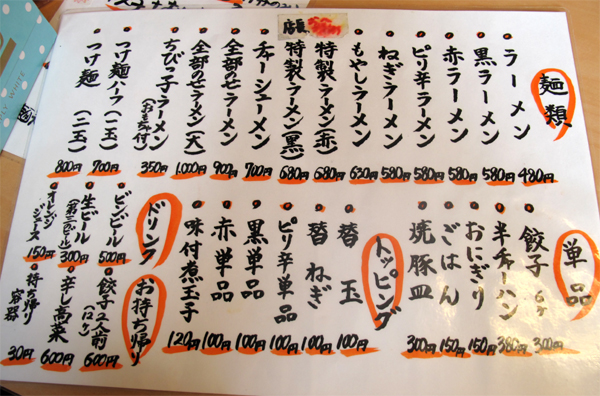 麺類
ラーメン 480円
黒ラーメン 580円
赤ラーメン 580円
ピリ辛ラーメン 580円
ねぎラーメン 580円
もやしラーメン 630円
特製ラーメン(赤) 680円
特製ラーメン(黒) 680円
チャーシューメン 700円
全部のせラーメン 900円
全部のせラーメン(大) 1,000円
ちびっ子ラーメン(おもちゃ付) 350円
つけ麺ハーフ(一玉) 700円
つけ麺(二玉) 800円
単品
餃子 6ヶ 300円
半チャーハン 380円
おにぎり 150円
ごはん 150円
焼豚皿 300円
トッピング
替玉 100円
替ねぎ 100円
ピリ辛単品 100円
黒単品 100円
赤単品 100円
味付煮玉子 120円
ドリンク
ビンビール 500円
生ビール(第三のビール) 300円
オレンジジュース 150円
お持ち帰り
餃子2人前(12ヶ) 600円
辛し高菜 600円
持ち帰り容器 30円